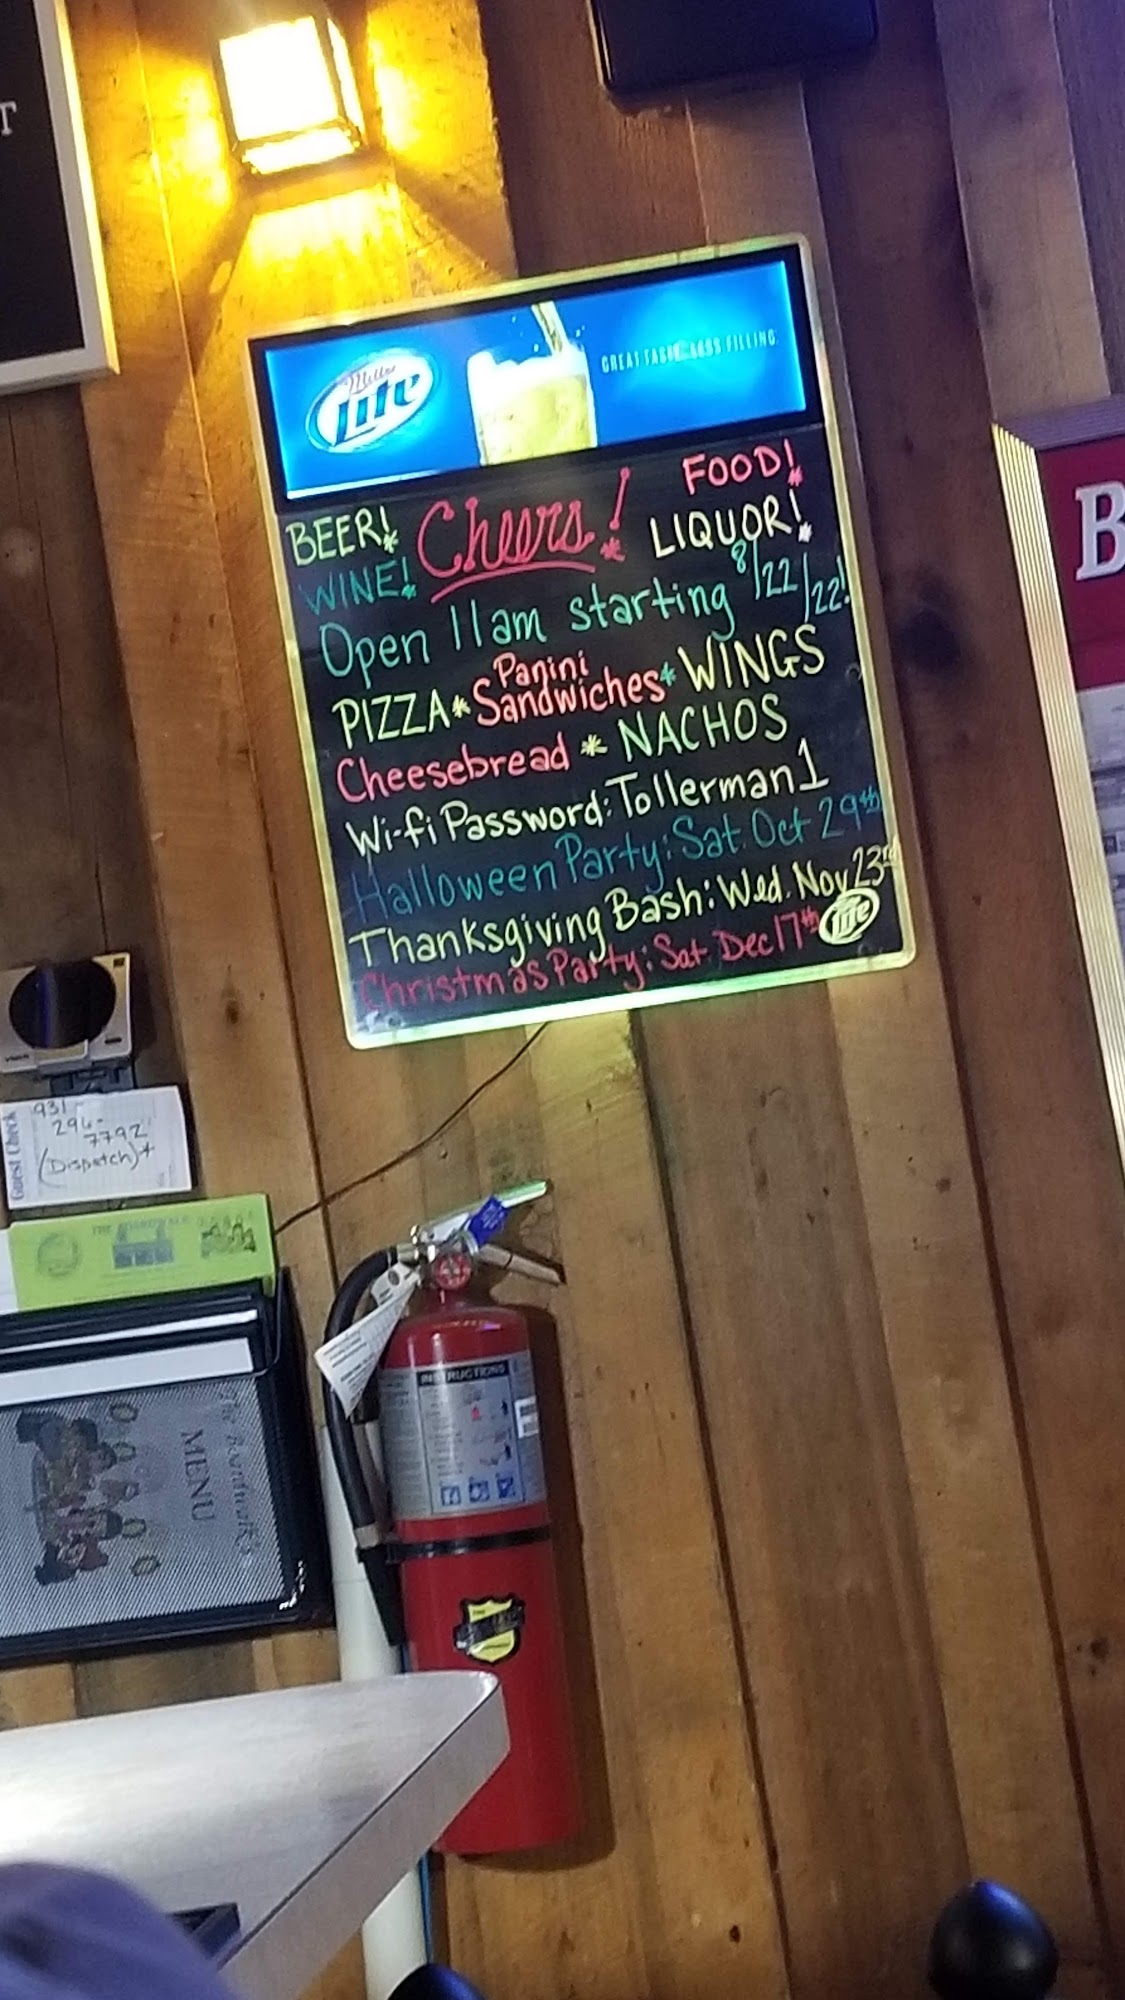 T
Miller
Lite
GREAT TASTE. LESS FILLING.
BEER! Cheers! FOOD!
WINE! LIQUOR!
Open 11am starting 8/22/22!
PIZZA * Panini Sandwiches * WINGS
Cheesebread * NACHOS
Wi-fi Password: Tollerman1
Halloween Party: Sat. Oct 29th
Thanksgiving Bash: Wed. Nov 23rd
Christmas Party: Sat Dec 17th
Lite
B
Guest Check
931-
296-
7792
(Dispatch)*
THE BOARDWALK
The Boardwalk's
MENU
INSTRUCTIONS